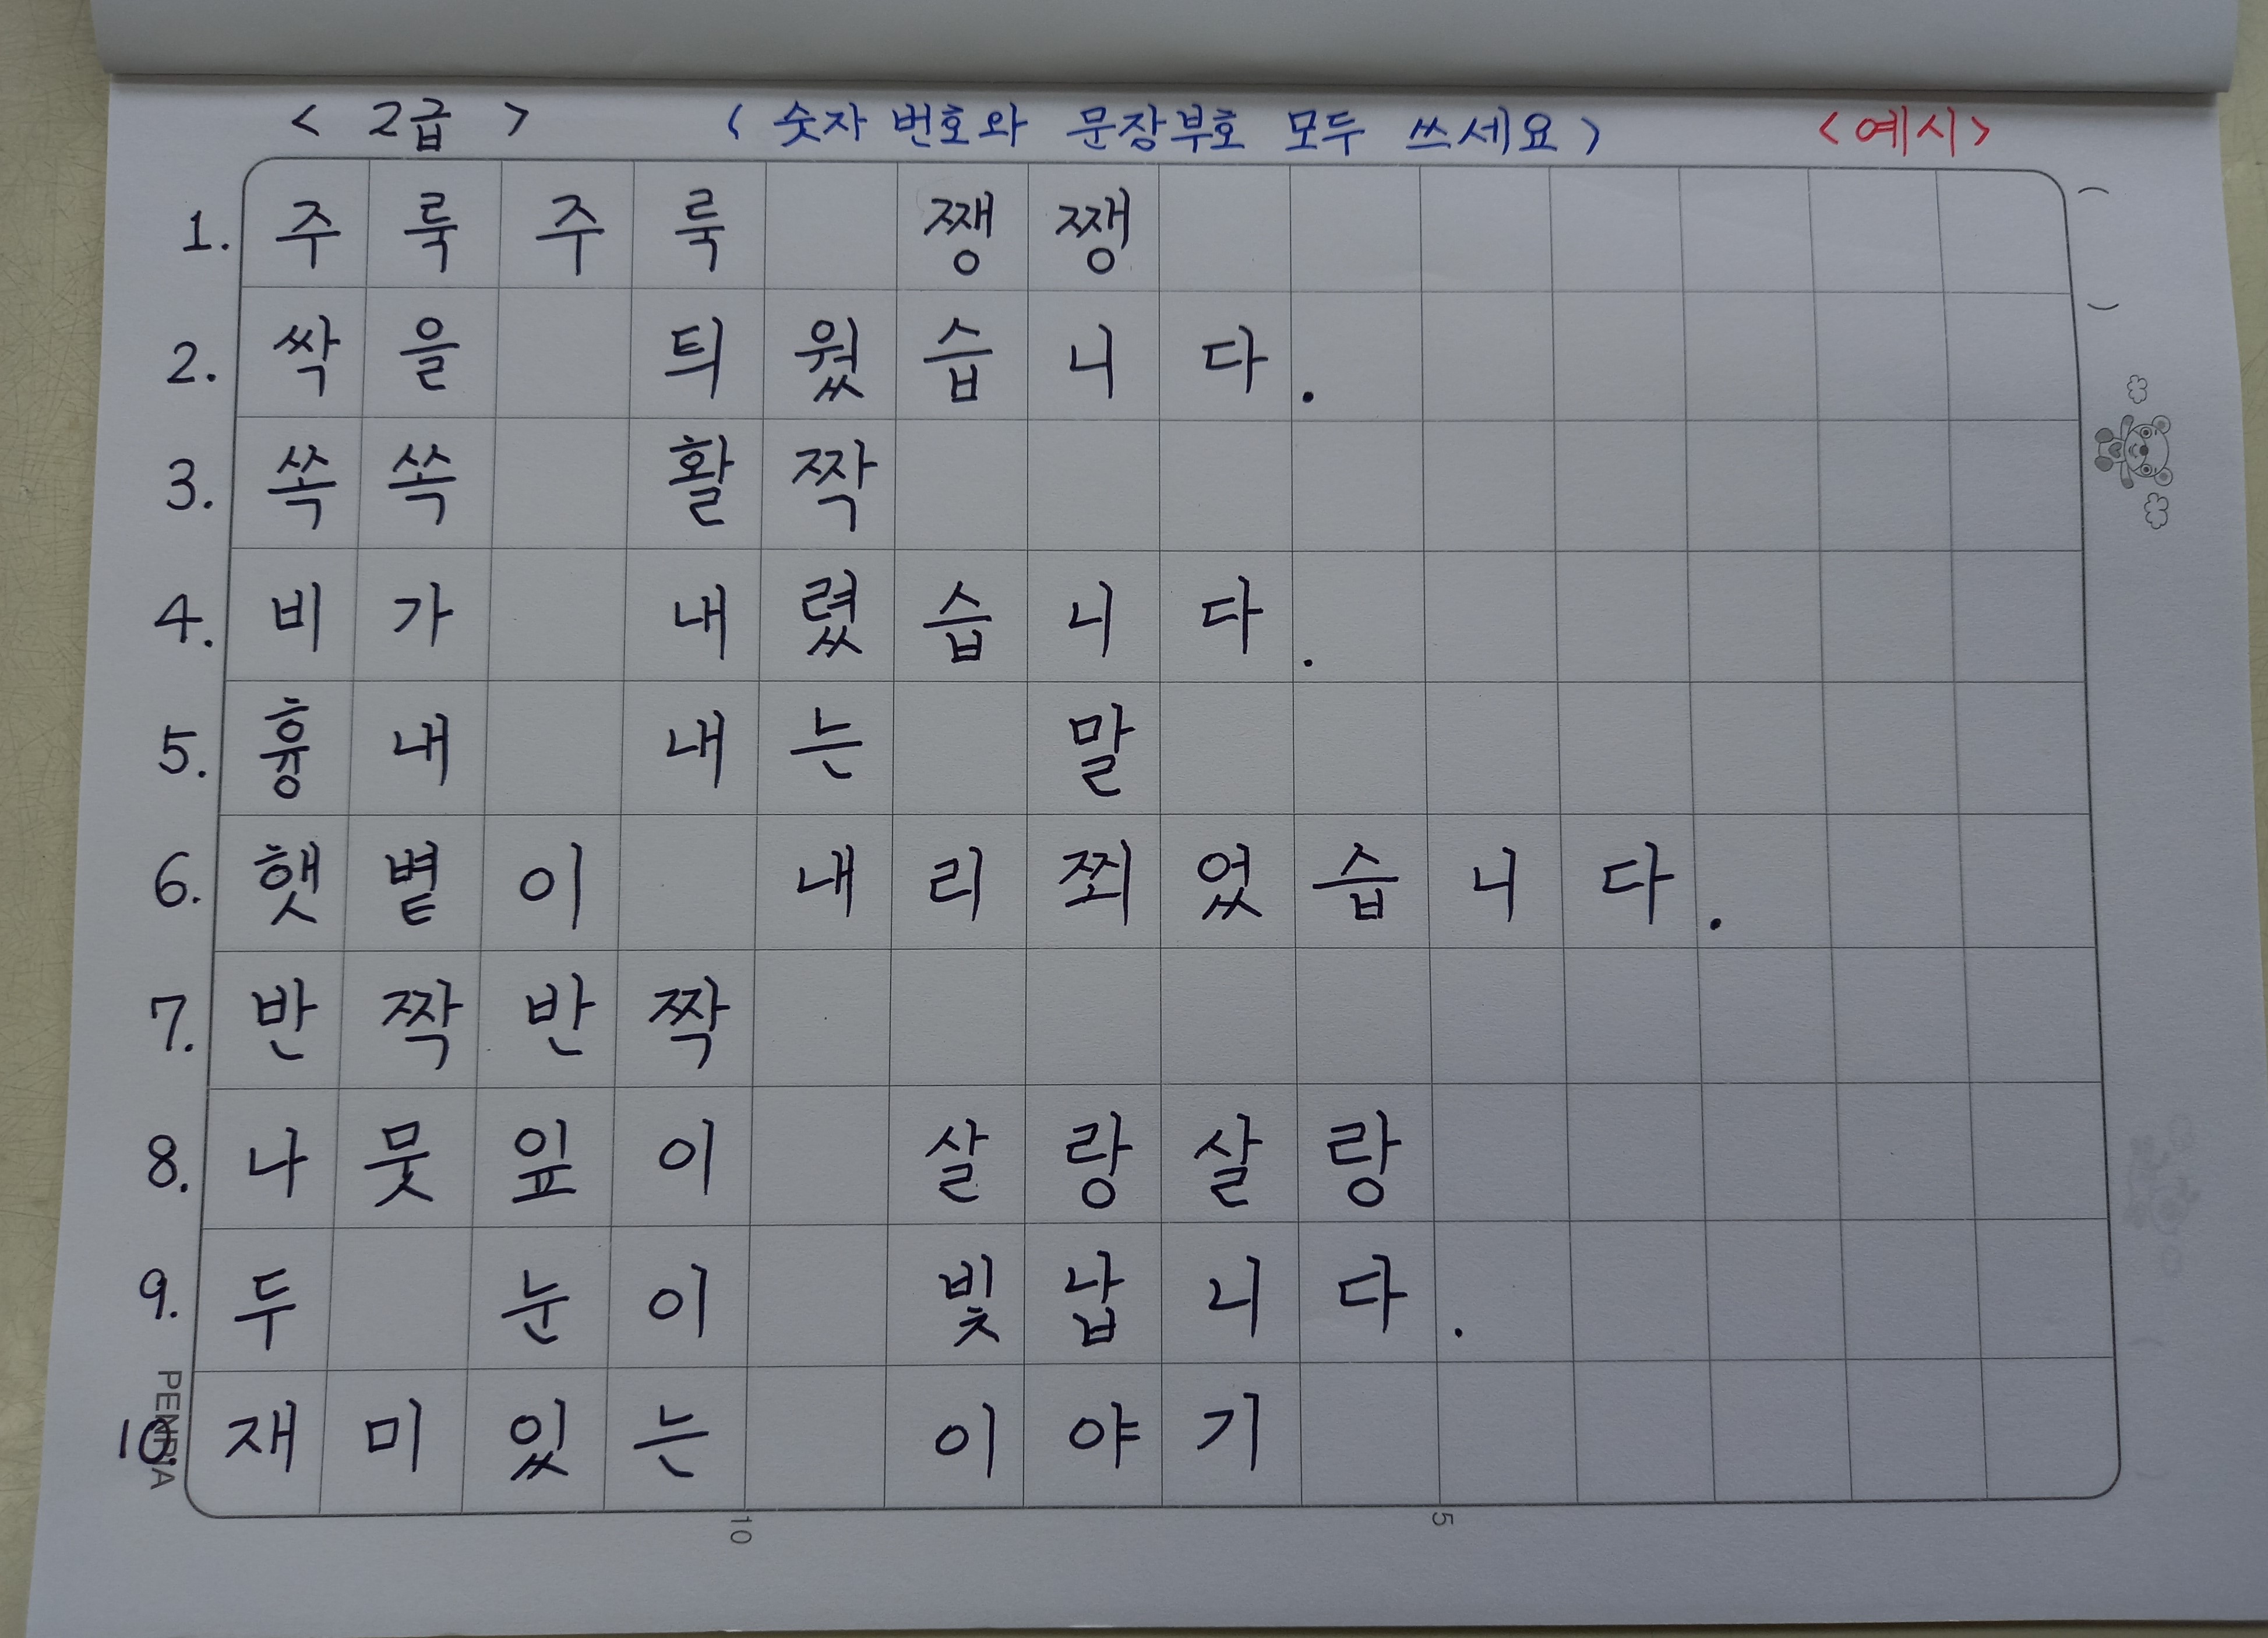 < 2급 > ( 숫자 번호와 문장부호 모두 쓰세요 ) <예시>
1. 주룩주룩 쨍쨍
2. 싹을 틔웠습니다.
3. 쏙쏙 활짝
4. 비가 내렸습니다.
5. 흉내 내는 말
6. 햇볕이 내리쬐었습니다.
7. 반짝반짝
8. 나뭇잎이 살랑살랑
9. 두 눈이 빛납니다.
10. 재미있는 이야기
10 5